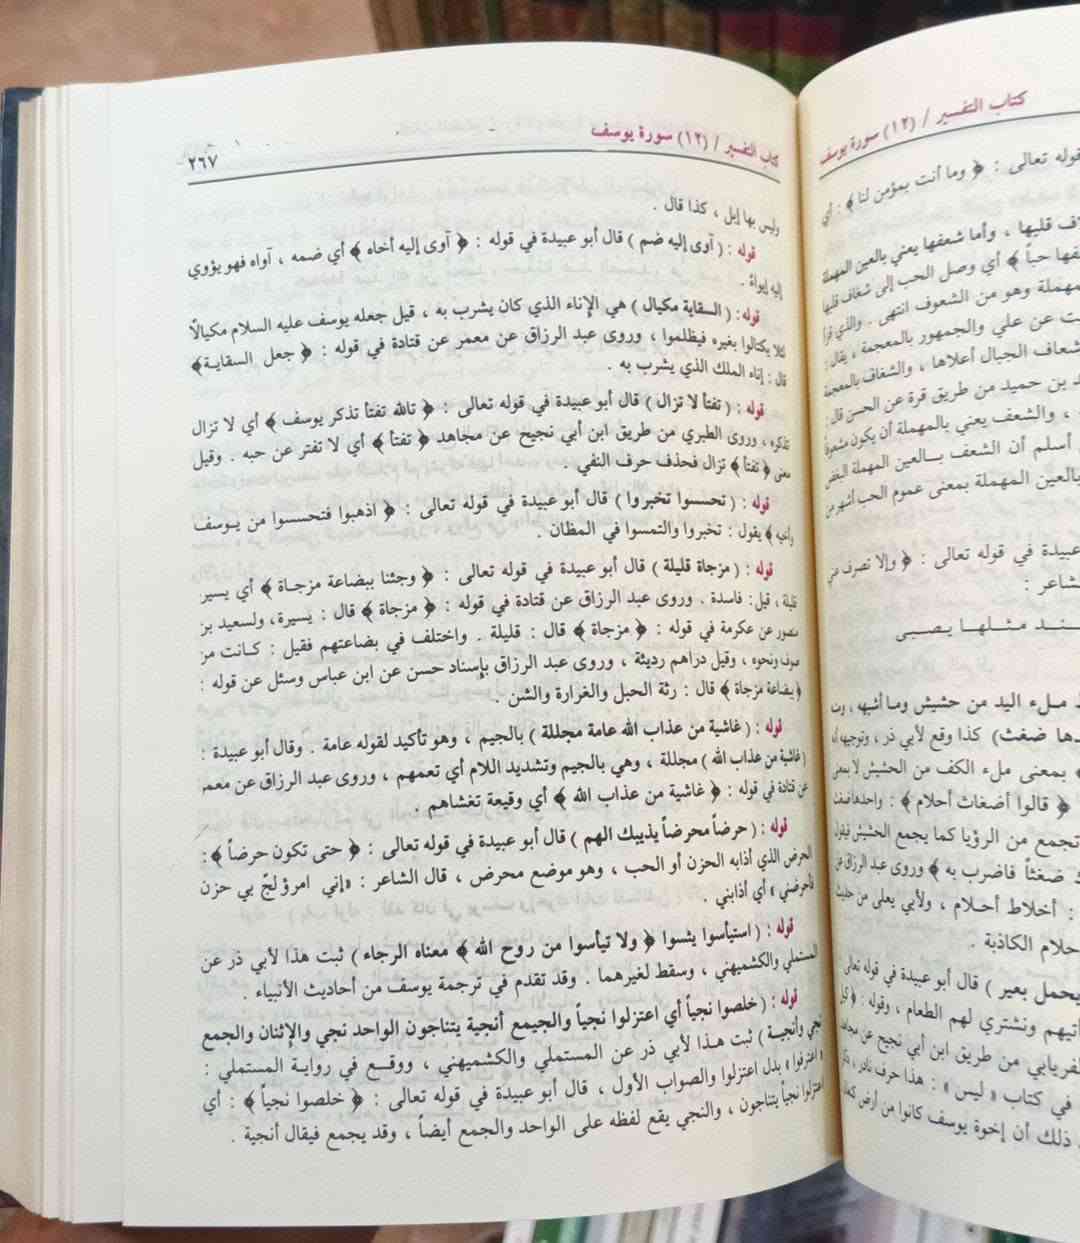 كتاب التفسير / (١٢) سورة يوسف
كتاب التفسير / (١٢) سورة يوسف ٢٦٧
قوله تعالى : ﴿ وما أنت بمؤمن لنا ﴾ : أي
قلبها ، وأما شعفها يعني بالعين المهملة
حباً ﴾ أي وصل الحب إلى شغاف قلبها
وهو من الشعوف انتهى . والذي
عن علي والجمهور بالمعجمة ، يقال :
الجبال أعلاها ، والشغاف بالمعجمة
بن حميد من طريق قرة عن الحسن قال :
، والشعف يعني بالمهملة أن يكون
أسلم أن الشعف بـالعين المهملة البغض
بالعين المهملة بمعنى عموم الحب أشهر من
عبيدة في قوله تعالى : ﴿ وإلا تصرف عني
شاعر :
مثـلهـا يـصبـى
ملء اليد من حشيش وما أشبهه ،
ضغث) كذا وقع لأبي ذر ، وتوجيهه
بمعنى ملء الكف من الحشيش لا بمعنى
﴿ قالوا أضغاث أحلام ﴾ : واحدها ضغث
تجمع من الرؤيا كما يجمع الحشيش فيقول
ضغثاً فاضرب به ﴾ وروى عبد الرزاق عن
: أخلاط أحلام ، ولأبي يعلى من حديث
الكاذبة .
يحمل بعير ) قال أبو عبيدة في قوله تعالى
ونشتري لهم الطعام ، وقوله : ﴿ كيل
من طريق ابن أبي نجيح عن مجاهد
في كتاب « ليس » : هذا حرف نادر ،
ذلك أن إخوة يوسف كانوا من أرض كنعان
وليس بها إبل ، كذا قال .
قوله : ( آوى إليه ضم ) قال أبو عبيدة في قوله : ﴿ آوى إليه أخاه ﴾ أي ضمه ، آواه فهو يؤوي
إليه إيواءً .
قوله : ( السقاية مكيال ) هي الإناء الذي كان يشرب به ، قيل جعله يوسف عليه السلام مكيالًا
لئلا يكتالوا بغيره فيظلموا ، وروى عبد الرزاق عن معمر عن قتادة في قوله : ﴿ جعل السقايـة﴾
قال : إناء الملك الذي يشرب به .
قوله : ( تفتأ لا تزال ) قال أبو عبيدة في قوله تعالى : ﴿ تالله تفتأ تذكر يوسف ﴾ أي لا تزال
تذكره ، وروى الطبري من طريق ابن أبي نجيح عن مجاهد ﴿ تفتأ ﴾ أي لا تفتر عن حبه . وقيل
معنى ﴿ تفتأ ﴾ تزال فحذف حرف النفي .
قوله : ( تحسسوا تخبروا ) قال أبو عبيدة في قوله تعالى : ﴿ اذهبوا فتحسسوا من يـوسف
وأخيه ﴾ يقول : تخبروا والتمسوا في المظان .
قوله : ( مزجاة قليلة ) قال أبو عبيدة في قوله تعالى : ﴿ وجئنا ببضاعة مزجـاة ﴾ أي يسير
قليلة ، قيل : فاسدة . وروى عبد الرزاق عن قتادة في قوله : ﴿ مزجاة ﴾ قال : يسيرة، ولسعيد بن
منصور عن عكرمة في قوله : ﴿ مزجاة ﴾ قال : قليلة . واختلف في بضاعتهم فقيل : كـانت من
صوف ونحوه ، وقيل دراهم رديئة ، وروى عبد الرزاق بإسناد حسن عن ابن عباس وسئل عن قوله :
﴿ بضاعة مزجاة ﴾ قال : رثة الحبل والغرارة والشن .
قوله : ( غاشية من عذاب الله عامة مجللة ) بالجيم ، وهو تأكيد لقوله عامة . وقال أبو عبيدة :
( غاشية من عذاب الله ) مجللة ، وهي بالجيم وتشديد اللام أي تعمهم ، وروى عبد الرزاق عن معمر
عن قتادة في قوله : ﴿ غاشية من عذاب الله ﴾ أي وقيعة تغشاهم .
قوله : ( حرضاً محرضاً يذيبك الهم ) قال أبو عبيدة في قوله تعالى : ﴿ حتى تكون حرضاً ﴾ :
الحرض الذي أذابه الحزن أو الحب ، وهو موضع محرض ، قال الشاعر : «إني امرؤ لجّ بي حزن
فأحرضني » أي أذابني .
قوله : ( استيأسوا يئسوا ﴿ ولا تيأسوا من روح الله ﴾ معناه الرجاء ) ثبت هذا لأبي ذر عن
المستملي والكشميهني ، وسقط لغيرهما . وقد تقدم في ترجمة يوسف من أحاديث الأنبياء .
قوله : ( خلصوا نجياً أي اعتزلوا نجياً والجيمع أنجية يتناجون الواحد نجي والإثنان والجمع
نجي وأنجية ) ثبت هـذا لأبي ذر عن المستملي والكشميهني ، ووقـع في روايـة المستملي :
« اعترفوا » بدل اعتزلوا والصواب الأول ، قال أبو عبيدة في قوله تعالى : ﴿ خلصوا نجياً ﴾ : أي
اعتزلوا نجياً يتناجون ، والنجي يقع لفظه على الواحد والجمع أيضاً ، وقد يجمع فيقال أنجية .